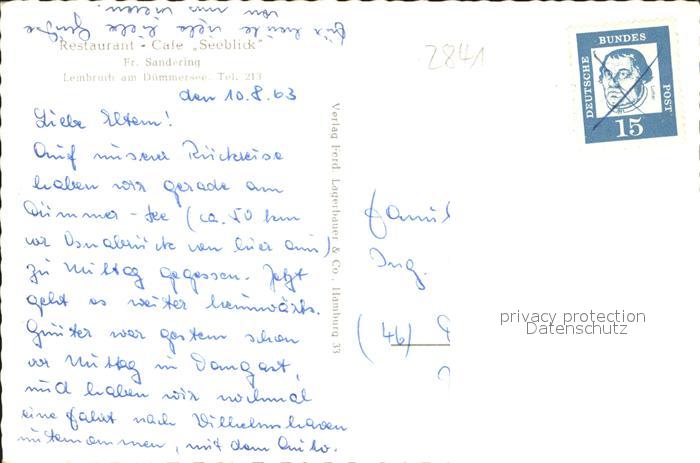 Für heute viele liebe Grüße
von uns vielen
Restaurant - Cafe „Seeblick"
Fr. Sandering
Lembruch am Dümmersee, Tel. 213
2841
DEUTSCHE
BUNDES
POST
15
den 10.8.63
Liebe Eltern!
Auf unserer Rückreise
haben wir gerade am
Dümmer-See (ca. 50 km
vor Osnabrück von hier aus)
zu Mittag gegessen. Jetzt
geht es weiter heimwärts.
Günter war gestern schon
vor Mittag in Dangast,
und haben wir nochmal
eine Fahrt nach Wilhelmshaven
unternommen, mit dem Auto.
Verlag Ferd. Lagerbauer & Co., Hamburg 33
Famil
Ing.
(46)
privacy protection
Datenschutz